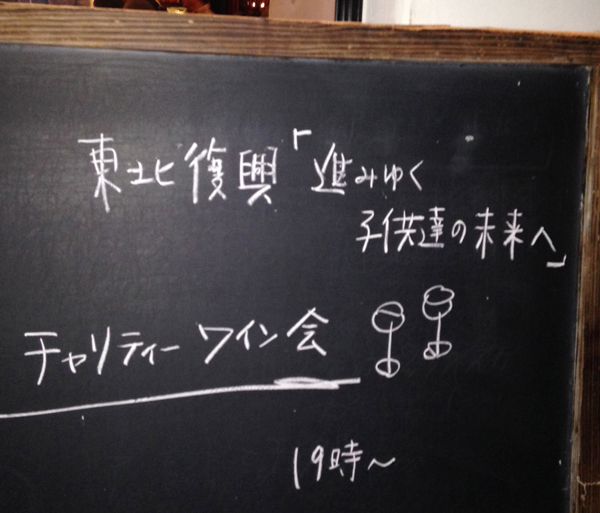 東北復興「進みゆく
子供達の未来へ」
チャリティーワイン会
19時～